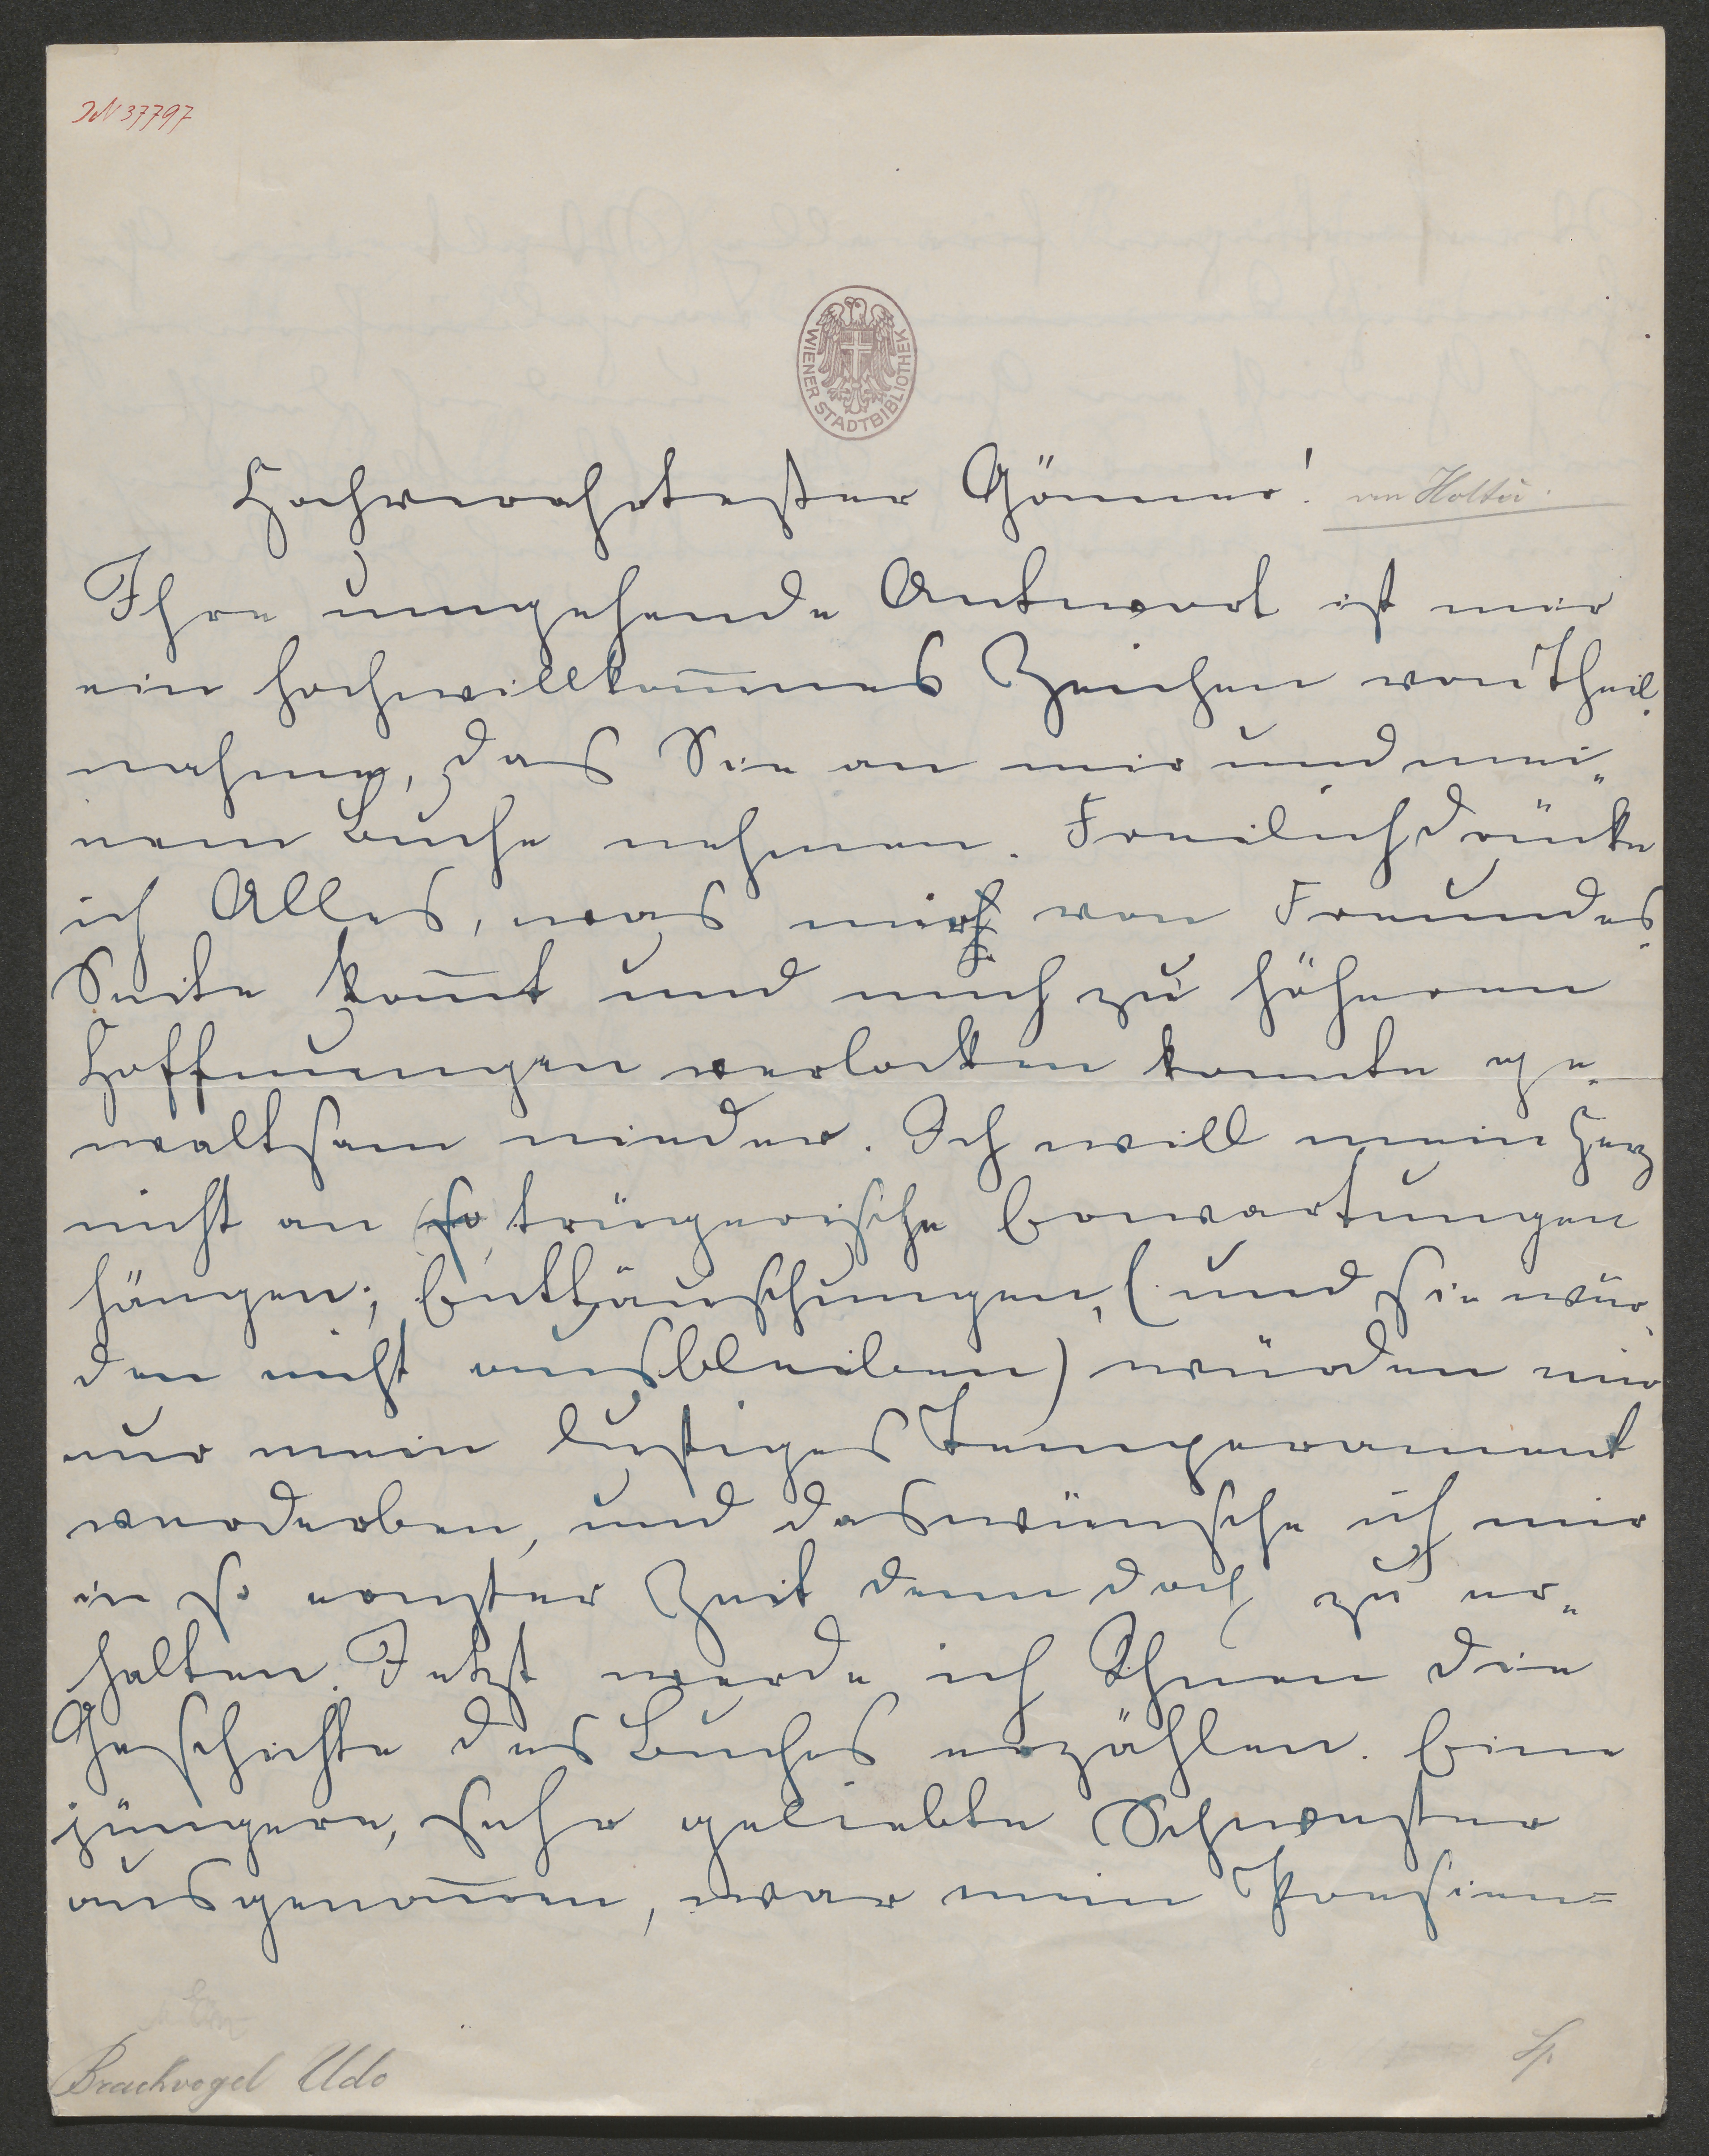 JN 37797
WIENER STADTBIBLIOTHEK
Hochverehrtester Gönner! von Holtei.
Ihre umgehende Antwort ist mir
ein hochwillkom̅nes Zeichen von Theil-
nahme, das Sie an mir und mei„
nem Buche nehmen. Freilich drücke
ich Alles, was mir von Freundes-
Seite kom̅t und mich zu höheren
Hoffnungen verlocken konnte ge-
waltsam nieder. Ich will mein Herz
nicht an so trügerische Erwartungen
hängen; Enttäuschungen, (und sie wür-
den nicht ausbleiben) würden mir
nur mein lustiges Temperament
verderben, und das wünsche ich mir
in so ernster Zeit denn doch zu er„
halten. Jetzt werde ich Ihnen die
Geschichte des Buches erzählen. Eine
jüngere, sehr geliebte Schwester
ausgenom̅en, war mein Poesieen=
Brachvogel Udo